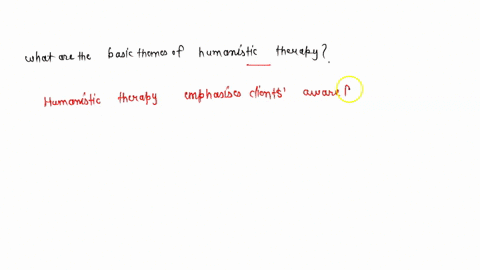 what are the basic themes of humanistic therapy?.
Humanistic therapy emphasises clients' aware